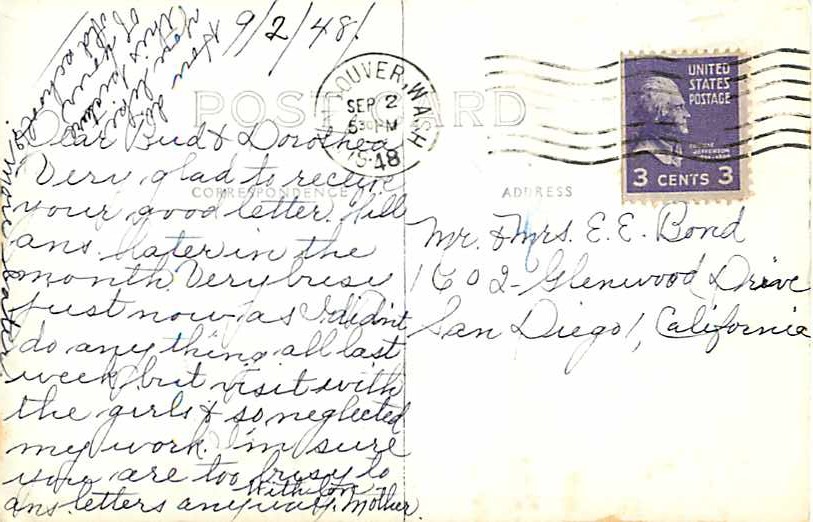 9/2/48/.
How do
you like
this picture
of your
old school?
POST CARD
VANCOUVER, WASH.
SEP 2
5 30 PM
1948
UNITED
STATES
POSTAGE
3 CENTS 3
CORRESPONDENCE
ADDRESS
Dear Bud & Dorothea
Very glad to receive
your good letter. Will
ans. later in the
month. Very busy
just now as I didn't
do anything all last
week but visit with
the girls & so neglected
my work. I'm sure
you are too busy to
ans. letters anyway.
With love
Mother.
more later.
Mr. & Mrs. E. E. Bond
1602 - Glenwood Drive
San Diego 1, California